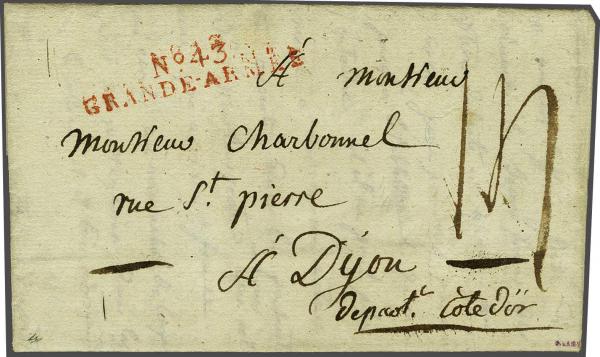 No. 43
GRANDE-ARMÉE
À Monsieur
Monsieur Charbonnel
rue St. pierre
À Dijon
depart.t Côte d'or